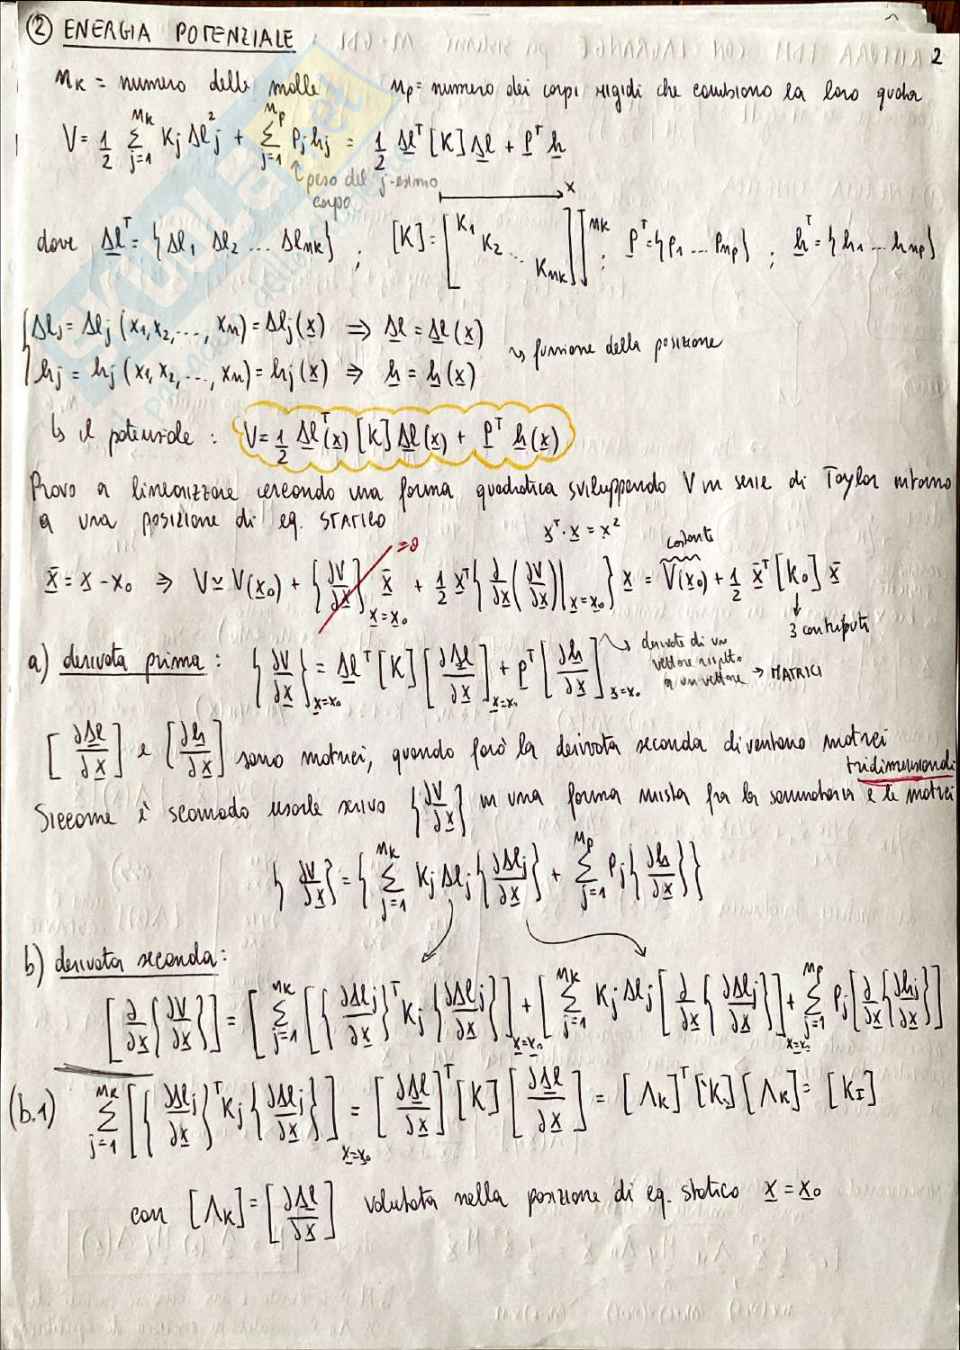 ② ENERGIA POTENZIALE 2
m_K = numero delle molle m_p = numero dei corpi rigidi che cambiono la loro quota
V = 1/2 Σ_{j=1}^{m_K} K_j Δl_j² + Σ_{j=1}^{m_p} P_j h_j = 1/2 Δl^T [K] Δl + P^T h
↑ peso del j-esimo
corpo
x
dove Δl^T = {Δl_1 Δl_2 ... Δl_mK} ; [K] = [K_1 K_2 ... K_mK] m_K ; P^T = {P_1 ... P_mp} ; h^T = {h_1 ... h_mp}
{Δl_j = Δl_j (x_1, x_2, ..., x_n) = Δl_j(x) ⇒ Δl = Δl(x)
↝ funzione della posizione
h_j = h_j (x_1, x_2, ..., x_n) = h_j(x) ⇒ h = h(x)
↳ il potenziale : V = 1/2 Δl^T(x) [K] Δl(x) + P^T h(x)
Provo a linearizzare cercando una forma quadratica sviluppando V in serie di Taylor intorno
a una posizione di eq. STATICO
x^T · x = x²
costante
=0
x̄ = x - x_0 ⇒ V ≃ V(x_0) + {∂V/∂x}_{x=x_0} x̄ + 1/2 x^T {∂/∂x (∂V/∂x)|_{x=x_0}} x = V(x_0) + 1/2 x̄^T [K_0] x̄
↓ 3 contributi
a) derivata prima : {∂V/∂x}_{x=x_0} = Δl^T [K] [∂Δl/∂x]_{x=x_0} + P^T [∂h/∂x]_{x=x_0}
derivate di un
vettore rispetto
a un vettore → MATRICI
[∂Δl/∂x] e [∂h/∂x] sono matrici, quando farò la derivata seconda diventano matrici
tridimensionali
Siccome è scomodo usarle scrivo {∂V/∂x} in una forma mista fra la sommatoria e le matrici
{∂V/∂x} = {Σ_{j=1}^{m_K} K_j Δl_j {∂Δl_j/∂x} + Σ_{j=1}^{m_p} P_j {∂h/∂x}}
b) derivata seconda:
[∂/∂x {∂V/∂x}] = [Σ_{j=1}^{m_K} [{∂Δl_j/∂x}^T K_j {∂Δl_j/∂x}]]_{x=x_0} + [Σ_{j=1}^{m_K} K_j Δl_j [∂/∂x {∂Δl_j/∂x}]]_{x=x_0} + Σ_{j=1}^{m_p} P_j [∂/∂x {∂h_j/∂x}]]
(b.1) Σ_{j=1}^{m_K} [{∂Δl_j/∂x}^T K_j {∂Δl_j/∂x}]_{x=x_0} = [∂Δl/∂x]^T [K] [∂Δl/∂x] = [Λ_K]^T [K] [Λ_K] = [K_I]
con [Λ_K] = [∂Δl/∂x] valutata nella posizione di eq. statico x = x_0